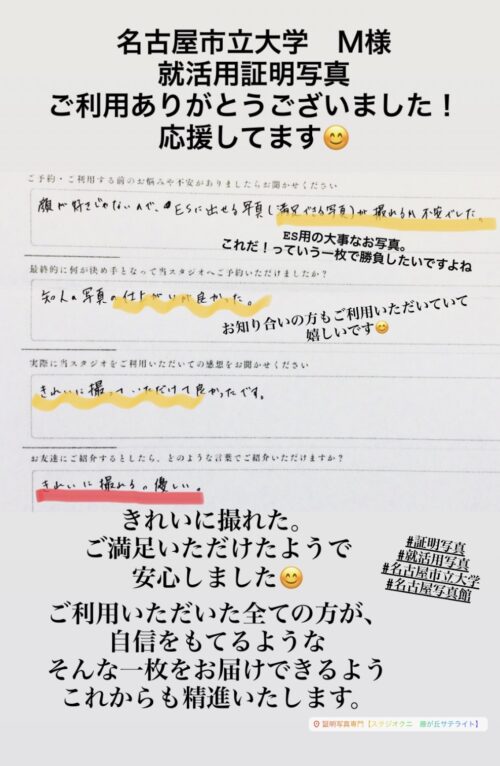 名古屋市立大学　M様
就活用証明写真
ご利用ありがとうございました！
応援してます😊
ご予約・ご利用する前のお悩みや不安がありましたらお聞かせください
顔が好きじゃないので、ESに出せる写真(満足できる写真)が撮れるか不安でした。
ES用の大事なお写真。
これだ！っていう一枚で勝負したいですよね
最終的に何が決め手となって当スタジオへご予約いただけましたか？
知人の写真の仕上がりが良かった。
お知り合いの方もご利用いただいていて
嬉しいです😊
実際に当スタジオをご利用いただいての感想をお聞かせください
きれいに撮っていただけて良かったです。
お友達にご紹介するとしたら、どのような言葉でご紹介いただけますか？
きれいに撮れる。優しい。
きれいに撮れた。
ご満足いただけたようで
安心しました😊
#証明写真
#就活用写真
#名古屋市立大学
#名古屋写真館
ご利用いただいた全ての方が、
自信をもてるような
そんな一枚をお届けできるよう
これからも精進いたします。
証明写真専門【スタジオクニ　藤が丘サテライト】